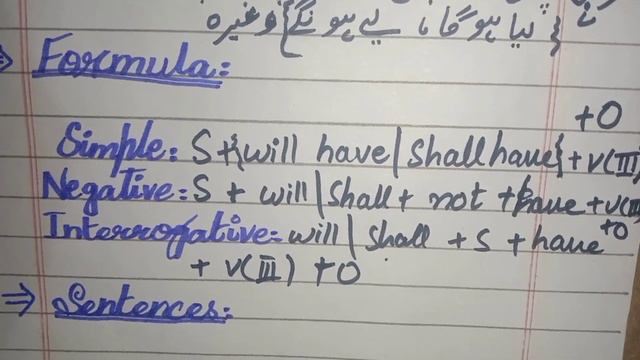 {لیا ہو گا، لیے ہونگے} وغیرہ
⇒ Formula:
+O
Simple: S+{will have|Shall have}+V(III)
Negative: S + will|Shall + not + have + V(III)
+O
Interrogative: will|Shall + S + have
+ V(III) +O
⇒ Sentences: